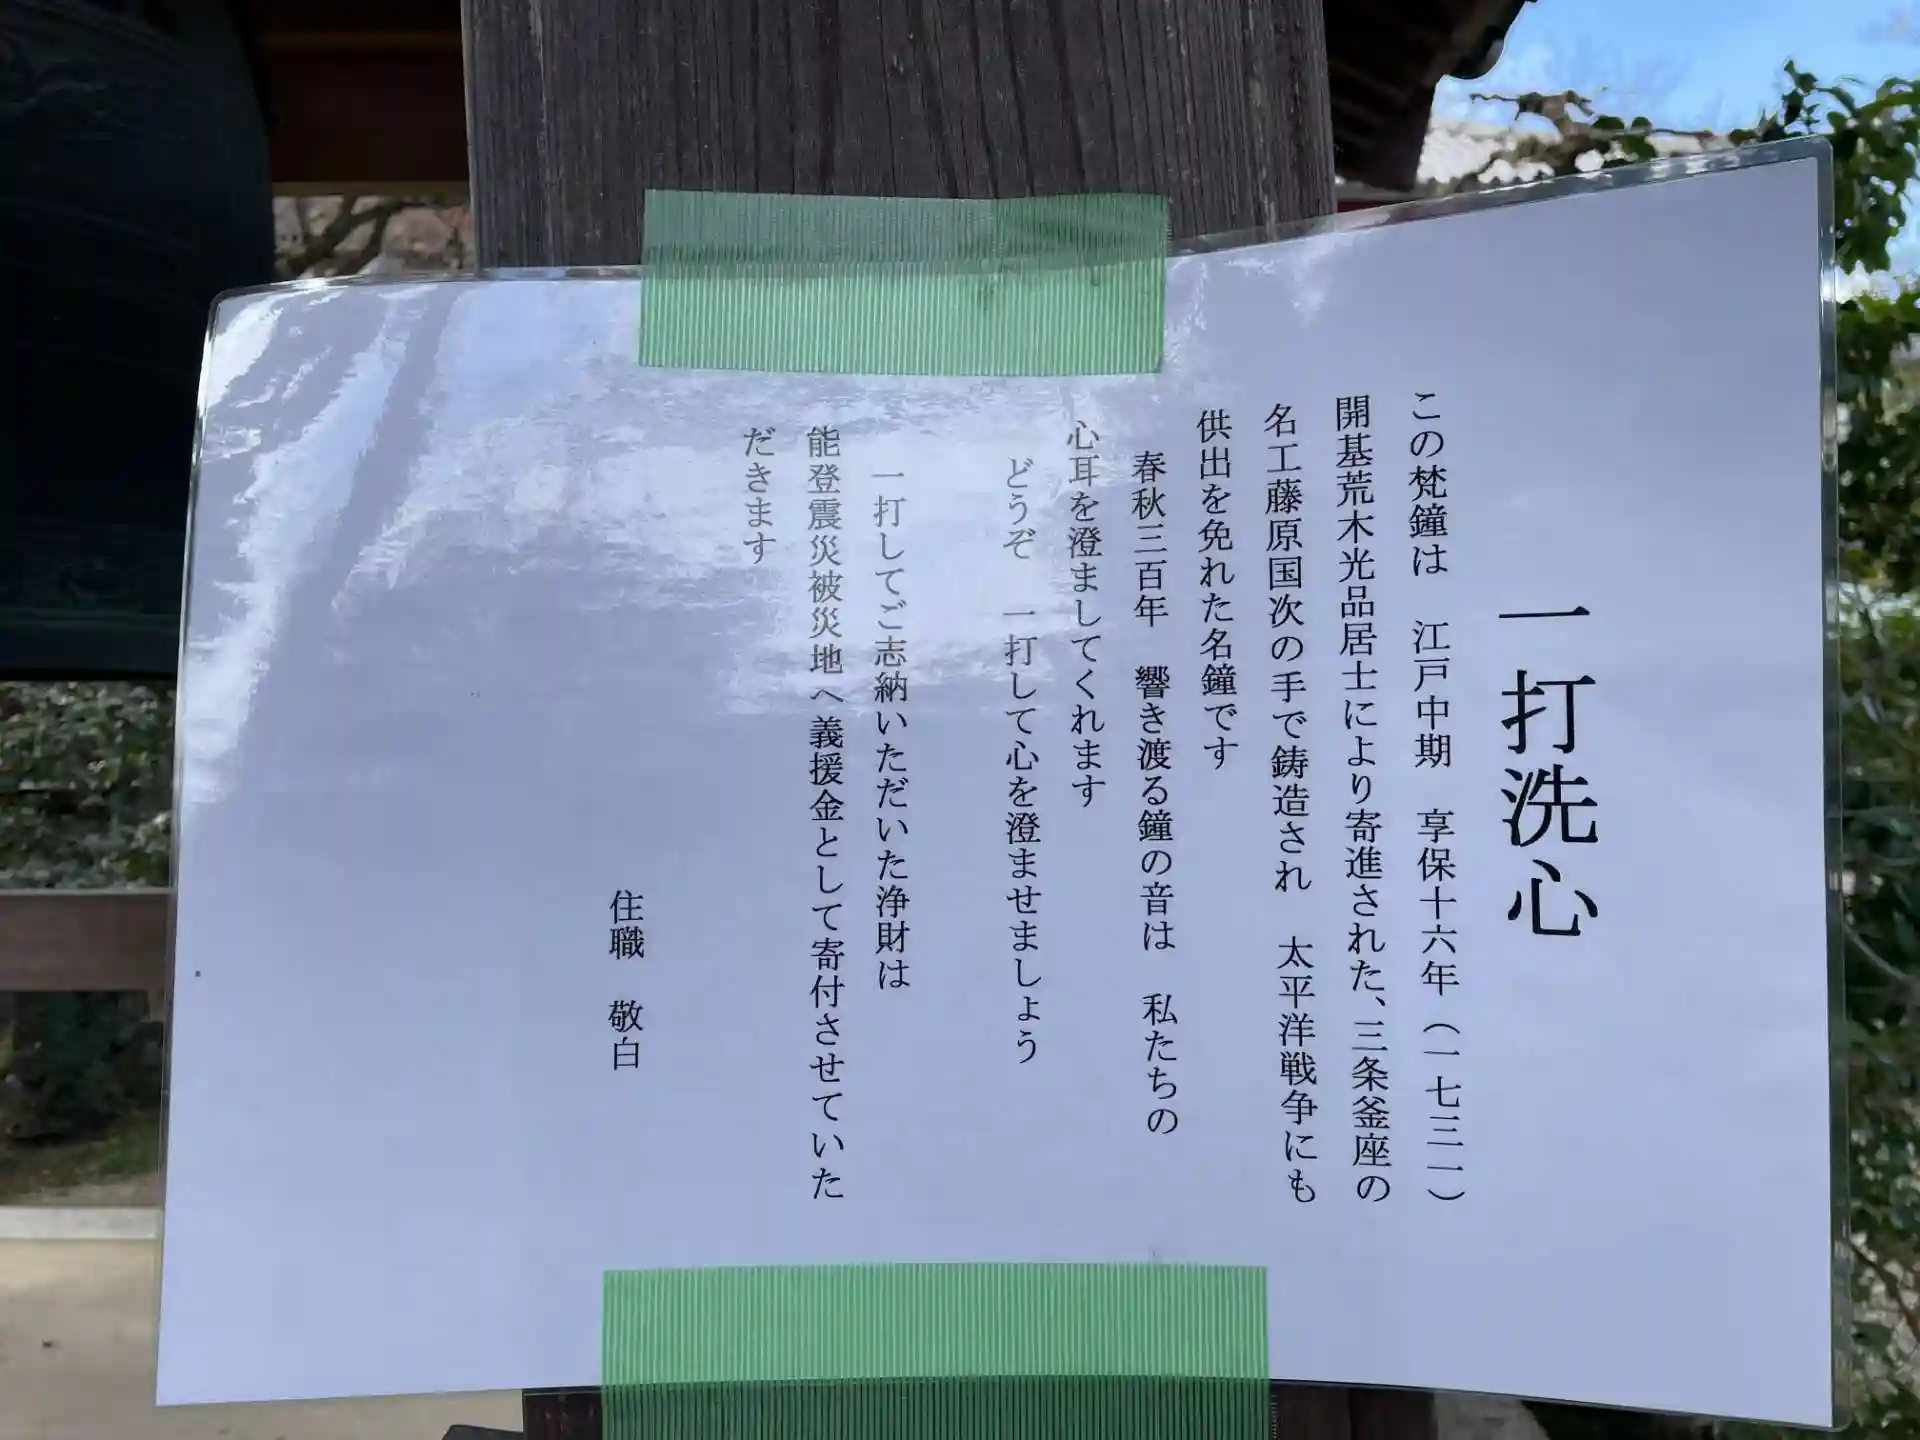 一打洗心
この梵鐘は　江戸中期　享保十六年（一七三一）
開基荒木光品居士により寄進された、三条釜座の
名工藤原国次の手で鋳造され　太平洋戦争にも
供出を免れた名鐘です
春秋三百年　響き渡る鐘の音は　私たちの
心耳を澄ましてくれます
どうぞ　一打して心を澄ませましょう
一打してご志納いただいた浄財は
能登震災被災地へ義援金として寄付させていた
だきます
住職　敬白